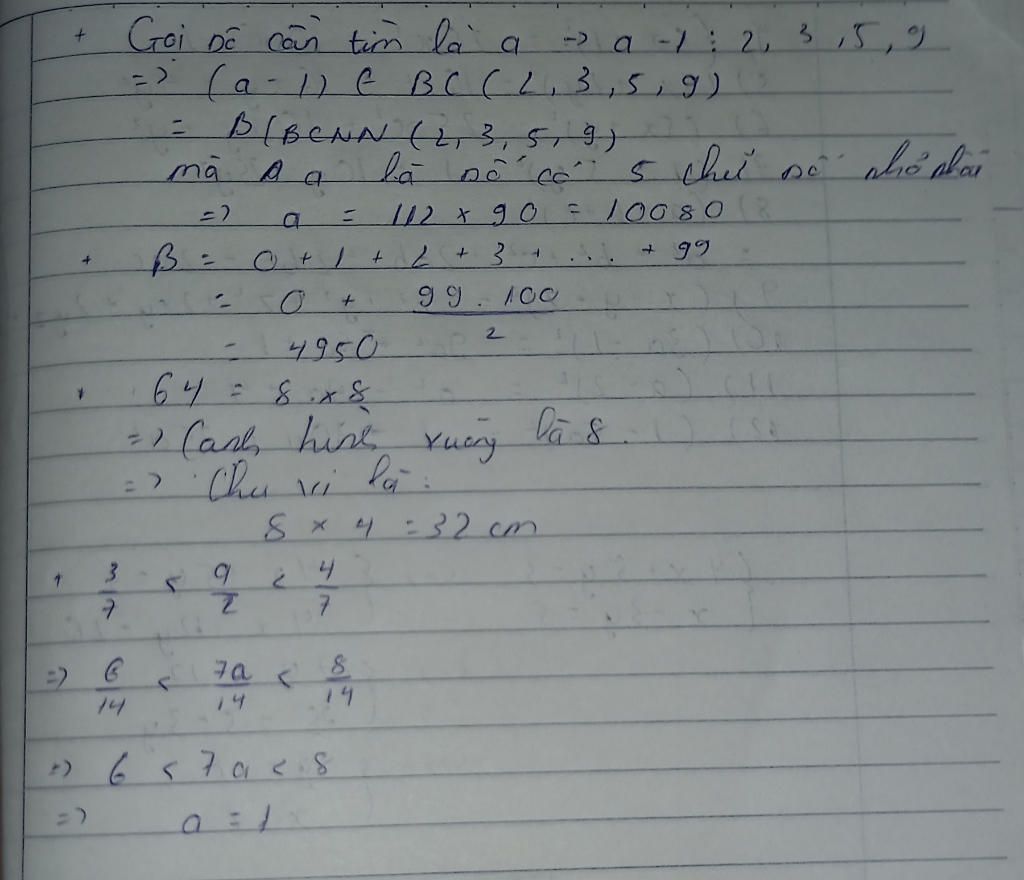 + Gọi số cần tìm là a -> a - 1 ⋮ 2, 3, 5, 9
=> (a - 1) ∈ BC (2, 3, 5, 9)
= B(BCNN (2, 3, 5, 9)
mà a là số có 5 chữ số nhỏ nhất
=> a = 112 x 90 = 10080
+ B = 0 + 1 + 2 + 3 + ... + 99
= 0 + 99 . 100 / 2
= 4950
+ 64 = 8 x 8
=> Cạnh hình vuông là 8.
=> Chu vi là:
8 x 4 = 32 cm
+ 3/7 < a/2 < 4/7
=> 6/14 < 7a/14 < 8/14
=> 6 < 7a < 8
=> a = 1